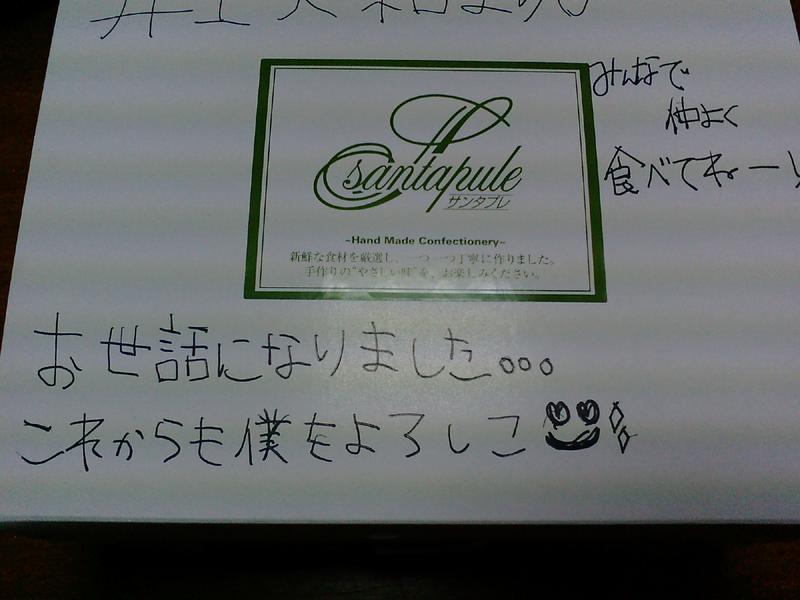 井上大和より
みんなで
仲よく
食べてねー!
santapule
サンタプレ
~Hand Made Confectionery~
新鮮な食材を厳選し、一つ一つ丁寧に作りました。
手作りの"やさしい味"を、お楽しみください。
お世話になりました。。。
これからも僕をよろしこ